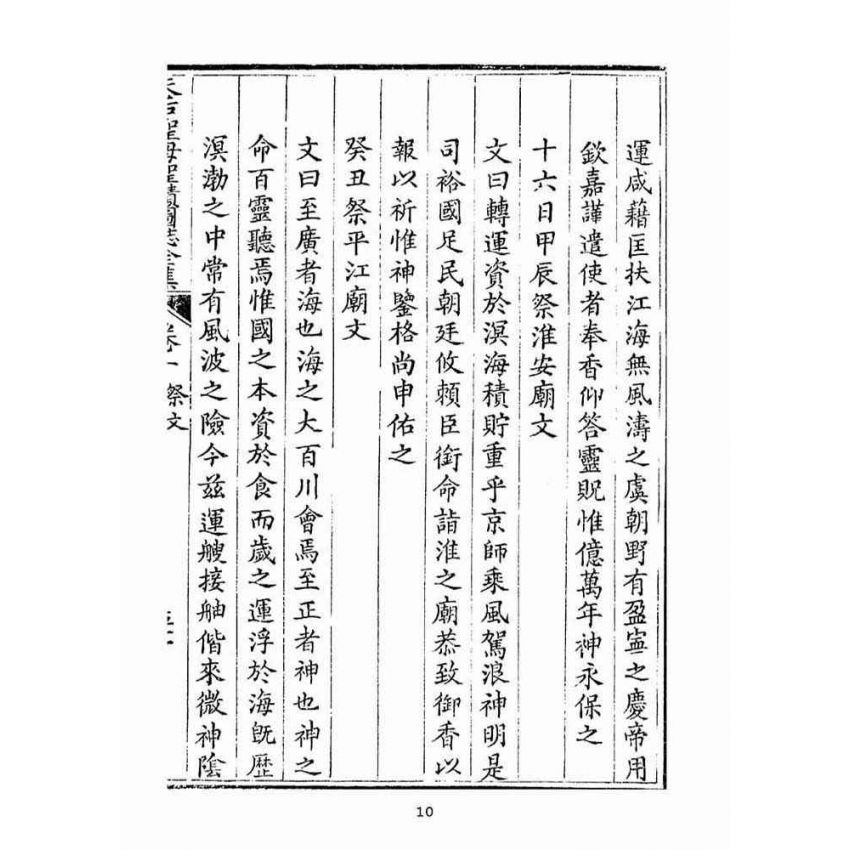 運咸藉匡扶江海無風濤之虞朝野有盈寧之慶帝用
欽嘉謹遣使者奉香仰答靈貺惟億萬年神永保之
十六日甲辰祭淮安廟文
文曰轉運資於溟海積貯重乎京師乘風駕浪神明是
司裕國足民朝廷攸賴臣銜命詣淮之廟恭致御香以
報以祈惟神鑒格尚申佑之
癸丑祭平江廟文
文曰至廣者海也海之大百川會焉至正者神也神之
命百靈聽焉惟國之本資於食而歲之運浮於海既歷
溟渤之中常有風波之險今茲運艘接舳偕來微神陰
天后聖母聖蹟圖誌全集 卷一 祭文
10